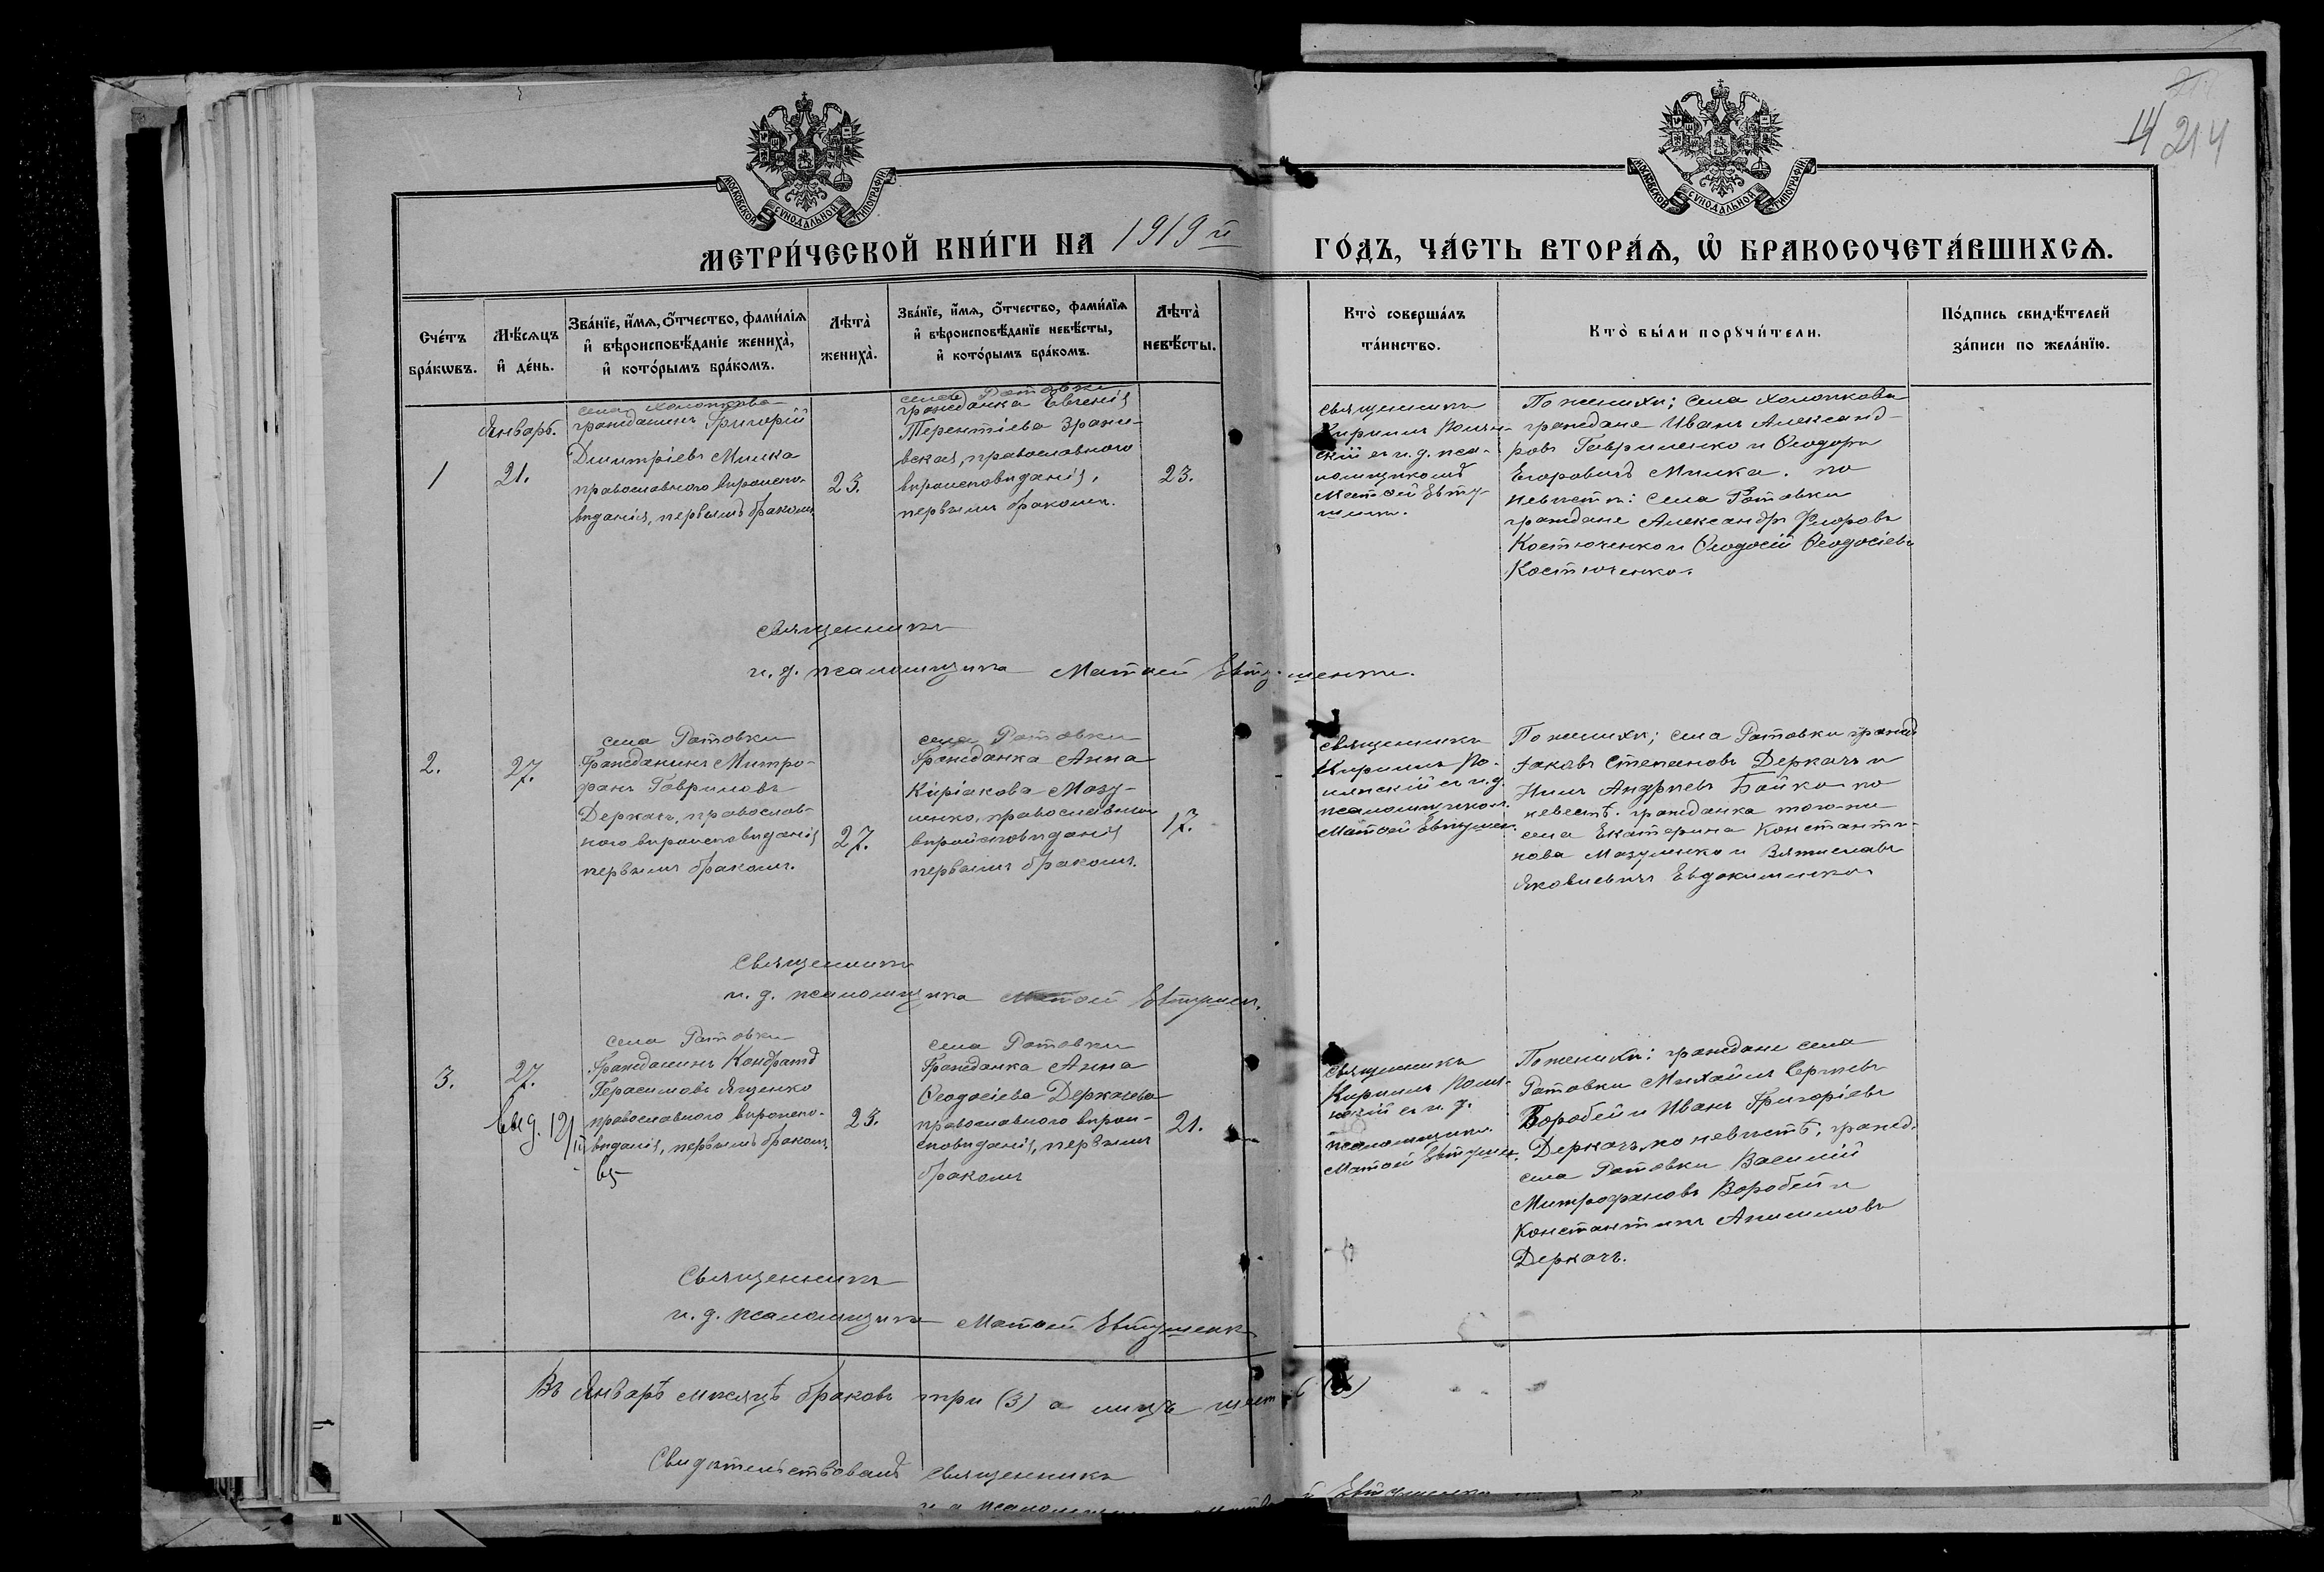 14
214
МОСКОВСКОЙ СѴНОДАЛЬНОЙ ТИПОГРАФІИ
МОСКОВСКОЙ СѴНОДАЛЬНОЙ ТИПОГРАФІИ
МЕТРИ́ЧЕСКОЙ КНИ́ГИ НА 1919 й
ГО́ДЪ, ЧА́СТЬ ВТОРА́Ѧ, Ѡ҆ БРАКОСОЧЕТА́ВШИХСѦ.
Сче́тъ
бра́кѡвъ.
Мѣ́сяцъ
и҆ де́нь.
Зва́нїе, и҆́мя, ѻ҆́тчество, фами́лїя
и҆ вѣроисповѣ́данїе жениха̀,
и҆ кото́рымъ бра́комъ.
Лѣта̀
жениха̀.
Зва́нїе, и҆́мя, ѻ҆́тчество, фами́лїя
и҆ вѣроисповѣ́данїе невѣ́сты,
и҆ кото́рымъ бра́комъ.
Лѣта̀
невѣ́сты.
Кто̀ соверша́лъ
та́инство.
Кто̀ бы́ли порꙋчи́тели.
По́дпись свидѣ́телей
за́писи по жела́нїю.
1
Январь.
21.
села Холопкова
гражданинъ Григорій
Дмитріевъ Милка
православного вироиспо-
виданія, первымъ бракомъ
23.
села Ротовки
гражданка Евгенія
Терентіева
вская, православного
вироисповиданія,
первымъ бракомъ.
23.
священникъ
Кирилъ
скій и и. д. пса-
ломщикомъ
Матөей Евту-
шенк.
По жениху; села Холопкова
граждане Иванъ Александ-
ровъ Гавриленко и Ѳеодоръ
Егоровичъ Милка. по
невисти: села Ротовки
граждане Александръ Флоровъ
Костюченко и Ѳеодосій Ѳеодосіевъ
Костюченко.
священникъ
и. д. псаломщика Матөей Евтушенко.
2.
27.
села Ротовки
Гражданинъ Митро-
фанъ Гавриловъ
Деркачъ, православ-
ного вироисповиданія
первымъ бракомъ.
27.
села Ротовки
Гражданка Анна
Киріакова Мазу-
ленко, православного
вироисповиданія
первымъ бракомъ.
17.
священникъ
Кирилъ По-
лянскій и и. д.
псаломщиком.
Матөей Евтушен.
По жениху; села Ротовки гражд
Іаковъ Степановъ Деркачъ и
Нилъ Андріевъ Бойко по
невестѣ. гражданка того-же
села Екатерина Константи-
нова Мазуленко и
Яковлевичъ Евдокименко
Священникъ
и. д. псаломщика Матөей Евтушен.
3.
27.
выд. 12/III
села Ротовки
Гражданинъ Кондратъ
Герасимовъ Ященко
православного вироиспо-
виданія, первымъ бракомъ
23.
села Ротовки
Гражданка Анна
Ѳеодосіева Деркачева
православного вирои-
сповиданія, первымъ
бракомъ
21.
священникъ
Кирилъ Поля-
нскій и и. д.
псаломщик.
Матөей Евтушен.
По жениху: граждане села
Ротовки Михаилъ Сергіевъ
Воробей и Иванъ Григоріевъ
Деркачъ, по невистѣ: гражд.
села Ротовки Василій
Митрофановъ Воробей и
Константинъ Анисимовъ
Деркачъ.
Священникъ
и. д. псаломщика Матөей Евтушенк
Въ Январѣ мисяцѣ браковъ три (3) а лицъ шест (6)
Свидительствовалъ священникъ
и д псаломщика Матөей Евтушенко